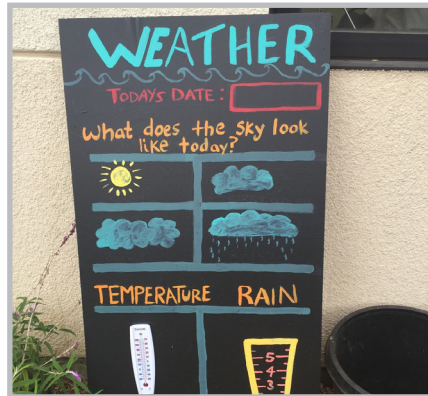 WEATHER
TODAYS DATE:
What does the sky look
like today?
TEMPERATURE RAIN
5
4
3